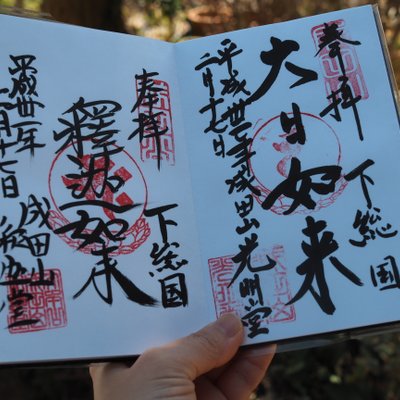 奉拝
下総国
大日如来
平成卅一年
二月十七日
成田山光明堂
奉拝
下総国
釋迦如来
平成卅一年
二月十七日
成田山
釈迦堂